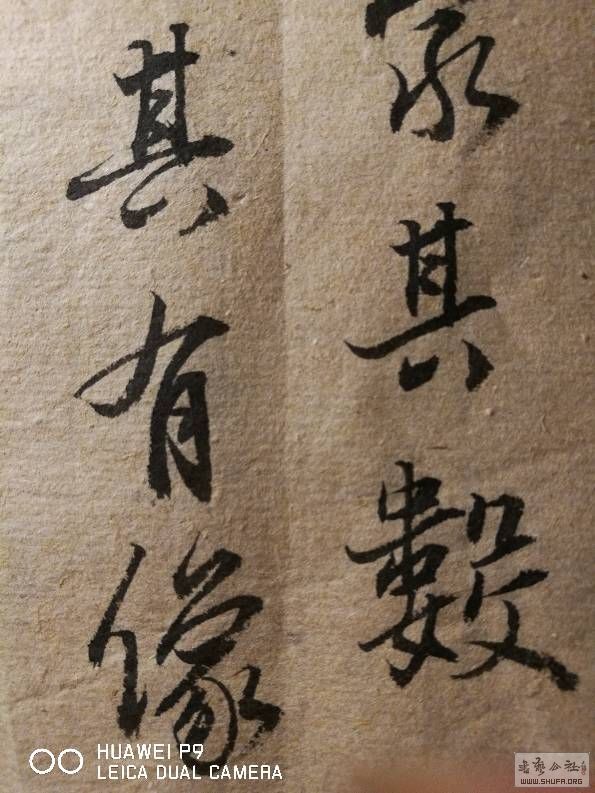 其數
其有像
HUAWEI P9
LEICA DUAL CAMERA
書藝公社
WWW.SHUFA.ORG